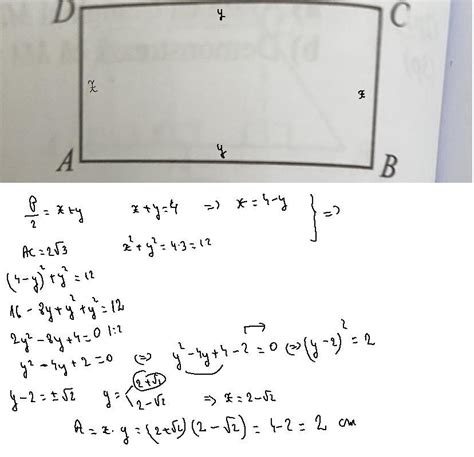 D y C
x x
A y B
P/2 = x+y x+y=4 => x=4-y } =>
AC=2√3 x²+y²=4·3=12
(4-y)²+y²=12
16-8y+y²+y²=12
2y²-8y+4=0 |:2
y²-4y+2=0 (=> y²-4y+4-2=0 (=> (y-2)²=2
y-2=±√2 y=< 2+√2 2-√2 => x=2-√2
A=x·y=(2+√2)(2-√2)=4-2=2 cm